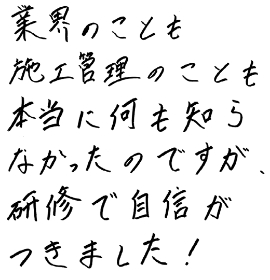 業界のことも
施工管理のことも
本当に何も知ら
なかったのですが、
研修で自信が
つきました！